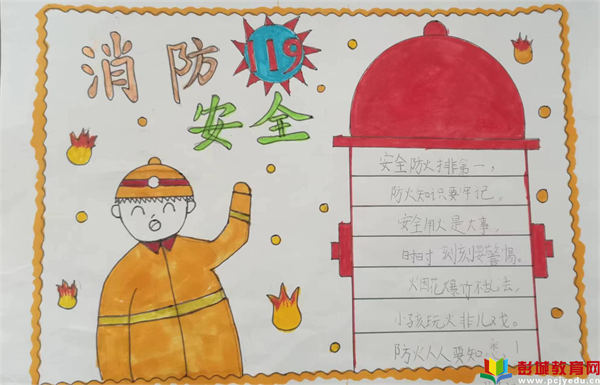 消防 119
安全
安全防火排第一，
防火知识要牢记。
安全用火是大事，
时时刻要警惕。
烟花爆竹不
小孩玩火非儿戏。
防火人人要知！
彭城教育网
www.pcjyedu.cn